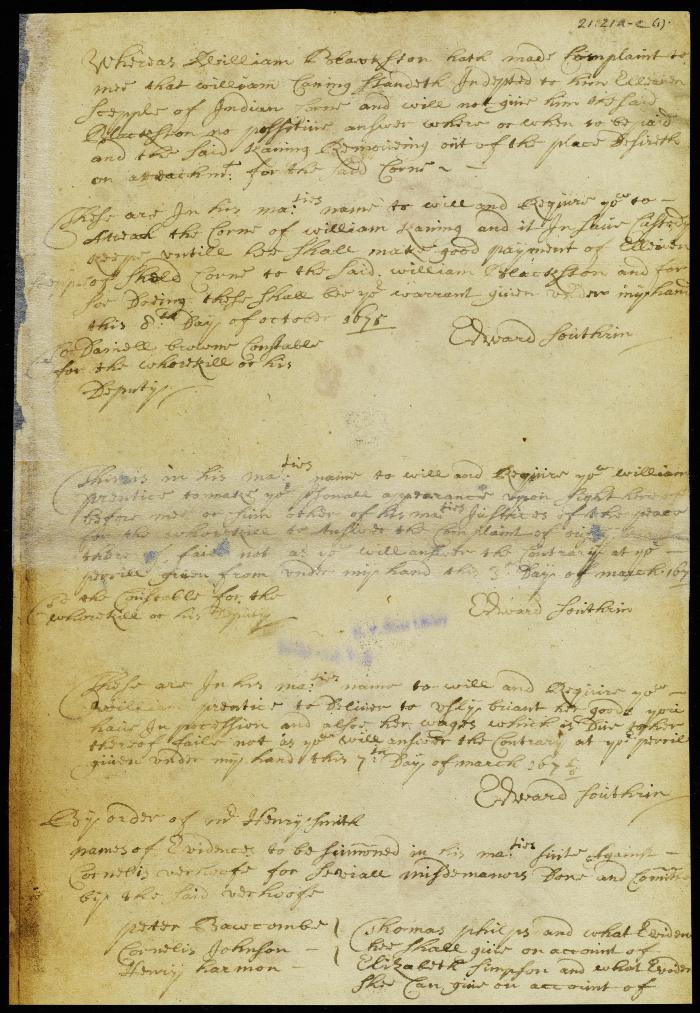 21:21a-e (1).
Whereas William Blackston hath made Complaint to
mee that william Caning standeth Indepted to him Elleven
Scepple of Indian Corne and will not give him the said
Blackston no possitive answer where or when to be paid
and the said Kaning Removeing out of the place desireth
on attachmt. for the said Corne
These are In his maties name to will and Require yow to
Attach the Corne of william Kaning and it In saive Custody
keepe untill hee shall make good payment of Eleiven
scepple of sheld Corne to the said william Blackston and for
soe Doeing these shall bee yor warrant given under my hand
this 8th Day of october 1675
Edward Southrin
To Daniell browne Constable
for the whorekill or his
Deputy
This is in his maties name to will and Require yow william
prentice to make yor psonall appearance upon sight hereof
before mee or sum other of his maties Justices of the peace
for the whorekill to Answer the Complaint of
thereof faile not as yow will answer the Contrary at yor
perrill given from under my hand this 3d Day of march 167
To the Constable for the
whorekill or his Deputy
Edward Southrin
These are In his maties name to will and Require yow
William prentice to Deliver to briant her goods you
have In possession and allsoe her wages which is Due to her
thereof faile not as yow will answer the Contrary at yor perrill
given under my hand this 7th Day of march 167 5/6
Edward Southrin
By order of mr Henry Smith
names of Evidences to be sumoned in his maties suite Against
Cornelis verhoofe for severall misdemanors Done and Comitted
by the said verhoofe
peter Bawcombe
Cornelis Johnson
Henry harmon
Thomas philps and what Eviden
hee shall give on account of
Elizabeth Simpson and what Eviden
shee Can give on account of